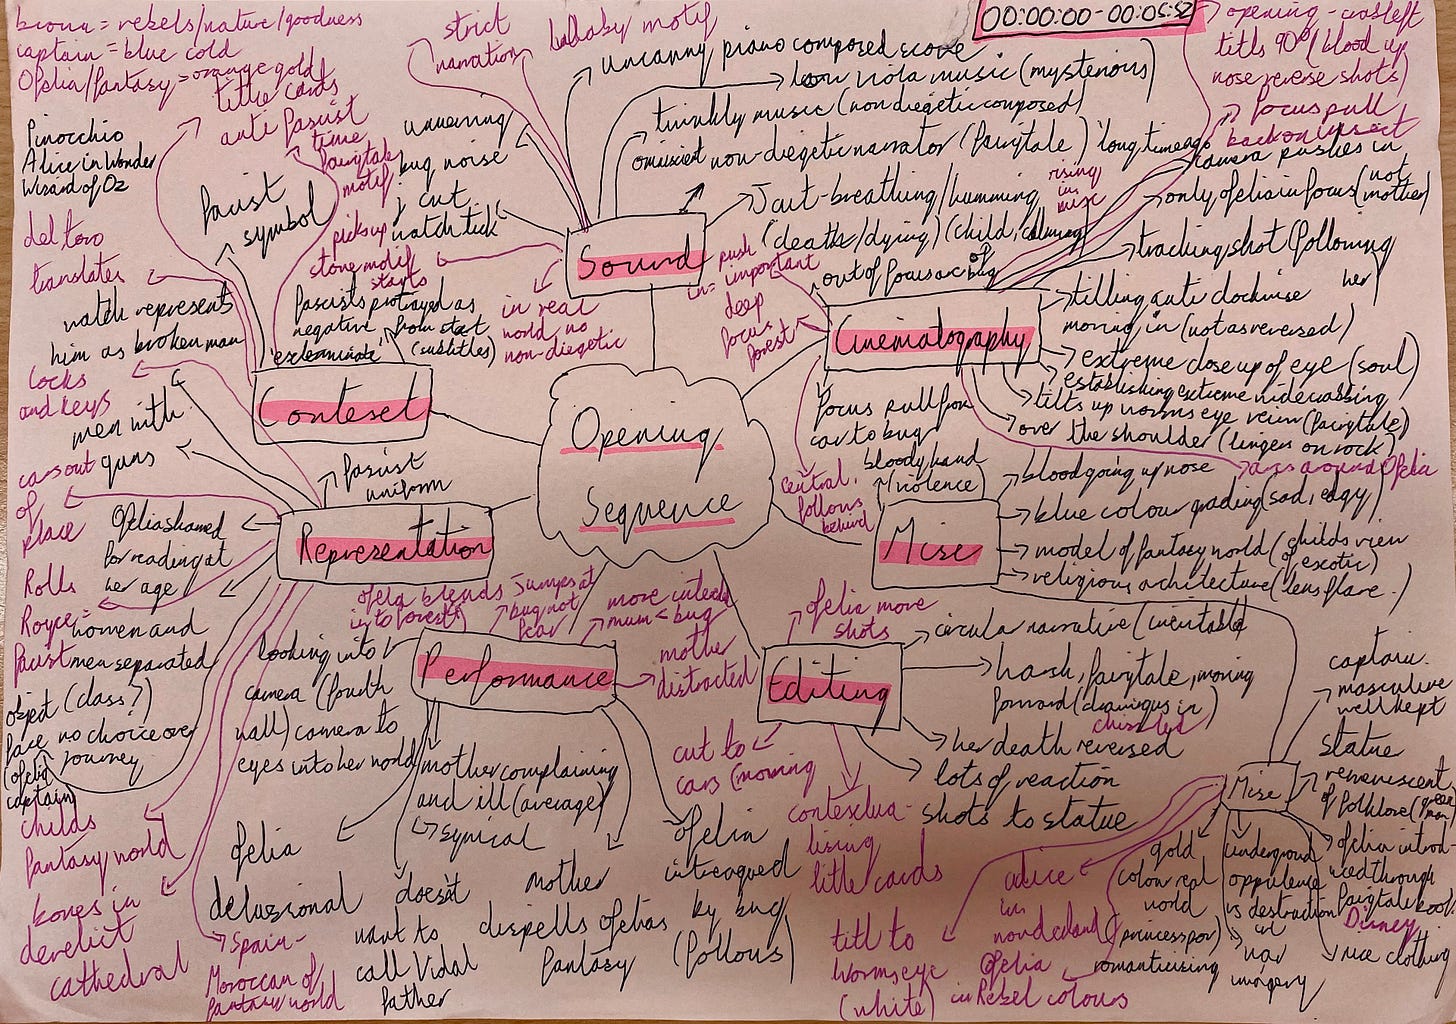 brown = rebels/nature/goodness
captain = blue cold
Ofelia/fantasy = orange gold
title cards
anti fascist
time
fairytale
motif
Pinocchio
Alice in Wonder
Wizard of Oz
fascist
symbol
del toro
translates
watch represents
him as broken man
locks
and keys
men with
guns
fascists portrayed as
negative from start
'exterminate' (subtitles)
Context
strict
narration
lullaby motif
unnerving
bug noise
j cut
watch tick
picks up
stone motif
starts
in real
world no
non-diegetic
uncanny piano composed score
low viola music (mysterious)
twinkly music (non diegetic composed)
omniscient non-diegetic narrator (fairytale) 'long time ago'
J cut-breathing/humming
(death/dying) (child, calming)
Sound
00:00:00-00:05:52
opening - crabs left
tilts 90° (blood up
nose reverse shots)
focus pull
back on insect
camera pushes in
rising
in
mise
only ofelia in focus (not
mother)
tracking shot (following
her)
out of focus arc of bug
push
in = important
deep
focus
forest
tilting anti clockwise
moving in (not as reversed)
extreme close up of eye (soul)
establishing extreme wide crabbing
tilts up worms eye view (fairytale)
over the shoulder (lingers on rock)
arcs around Ofelia
focus pull from
car to bug
central,
follows
behind
Cinematography
Opening
Sequence
bloody hand
(violence)
blood going up nose
blue colour grading (sad, edgy)
model of fantasy world (childs view
of exotic)
religious architecture (lens flare.)
Mise
fascist
uniform
cars out
of
place
Ofelia shamed
for reading at
her age
Rolls
Royce =
fascist
women and
men separated
object (class?)
no choice over
journey
(ofelia
captain)
childs
fantasy world
bones in
derelict
cathedral
Spain -
Moroccan of
fantasy world
Representation
ofelia blends
into forest
Jumps at
bug not
fear
more interest
mum < bug
mother
distracted
looking into
camera (fourth
wall) camera to
eyes into her world
mother complaining
and ill (average)
↳ synical
Ofelia
delusional
doesn't
want to
call Vidal
father
mother
dispells ofelias
fantasy
ofelia
intreagued
by bug
(follows)
Performance
ofelia more
shots
circular narrative (inevitable)
harsh, fairytale, moving
forward (drawings in)
chiselled
her death reversed
lots of reaction
shots to statue
cut to
cars (moving
contextua-
lising
title cards
Editing
captain.
masculine
well kept
statue
remeniscent
of folklore (green
man)
ofelia introd-
uced through
fairytale book
Disney
nice clothing
gold
colour real
world
(princess pov)
romanticising
underground
oppulence
vs destruction
war
imagery
alice
in
wonderland
Ofelia
in Rebel colours
tilt to
worms eye
(white)
Mise